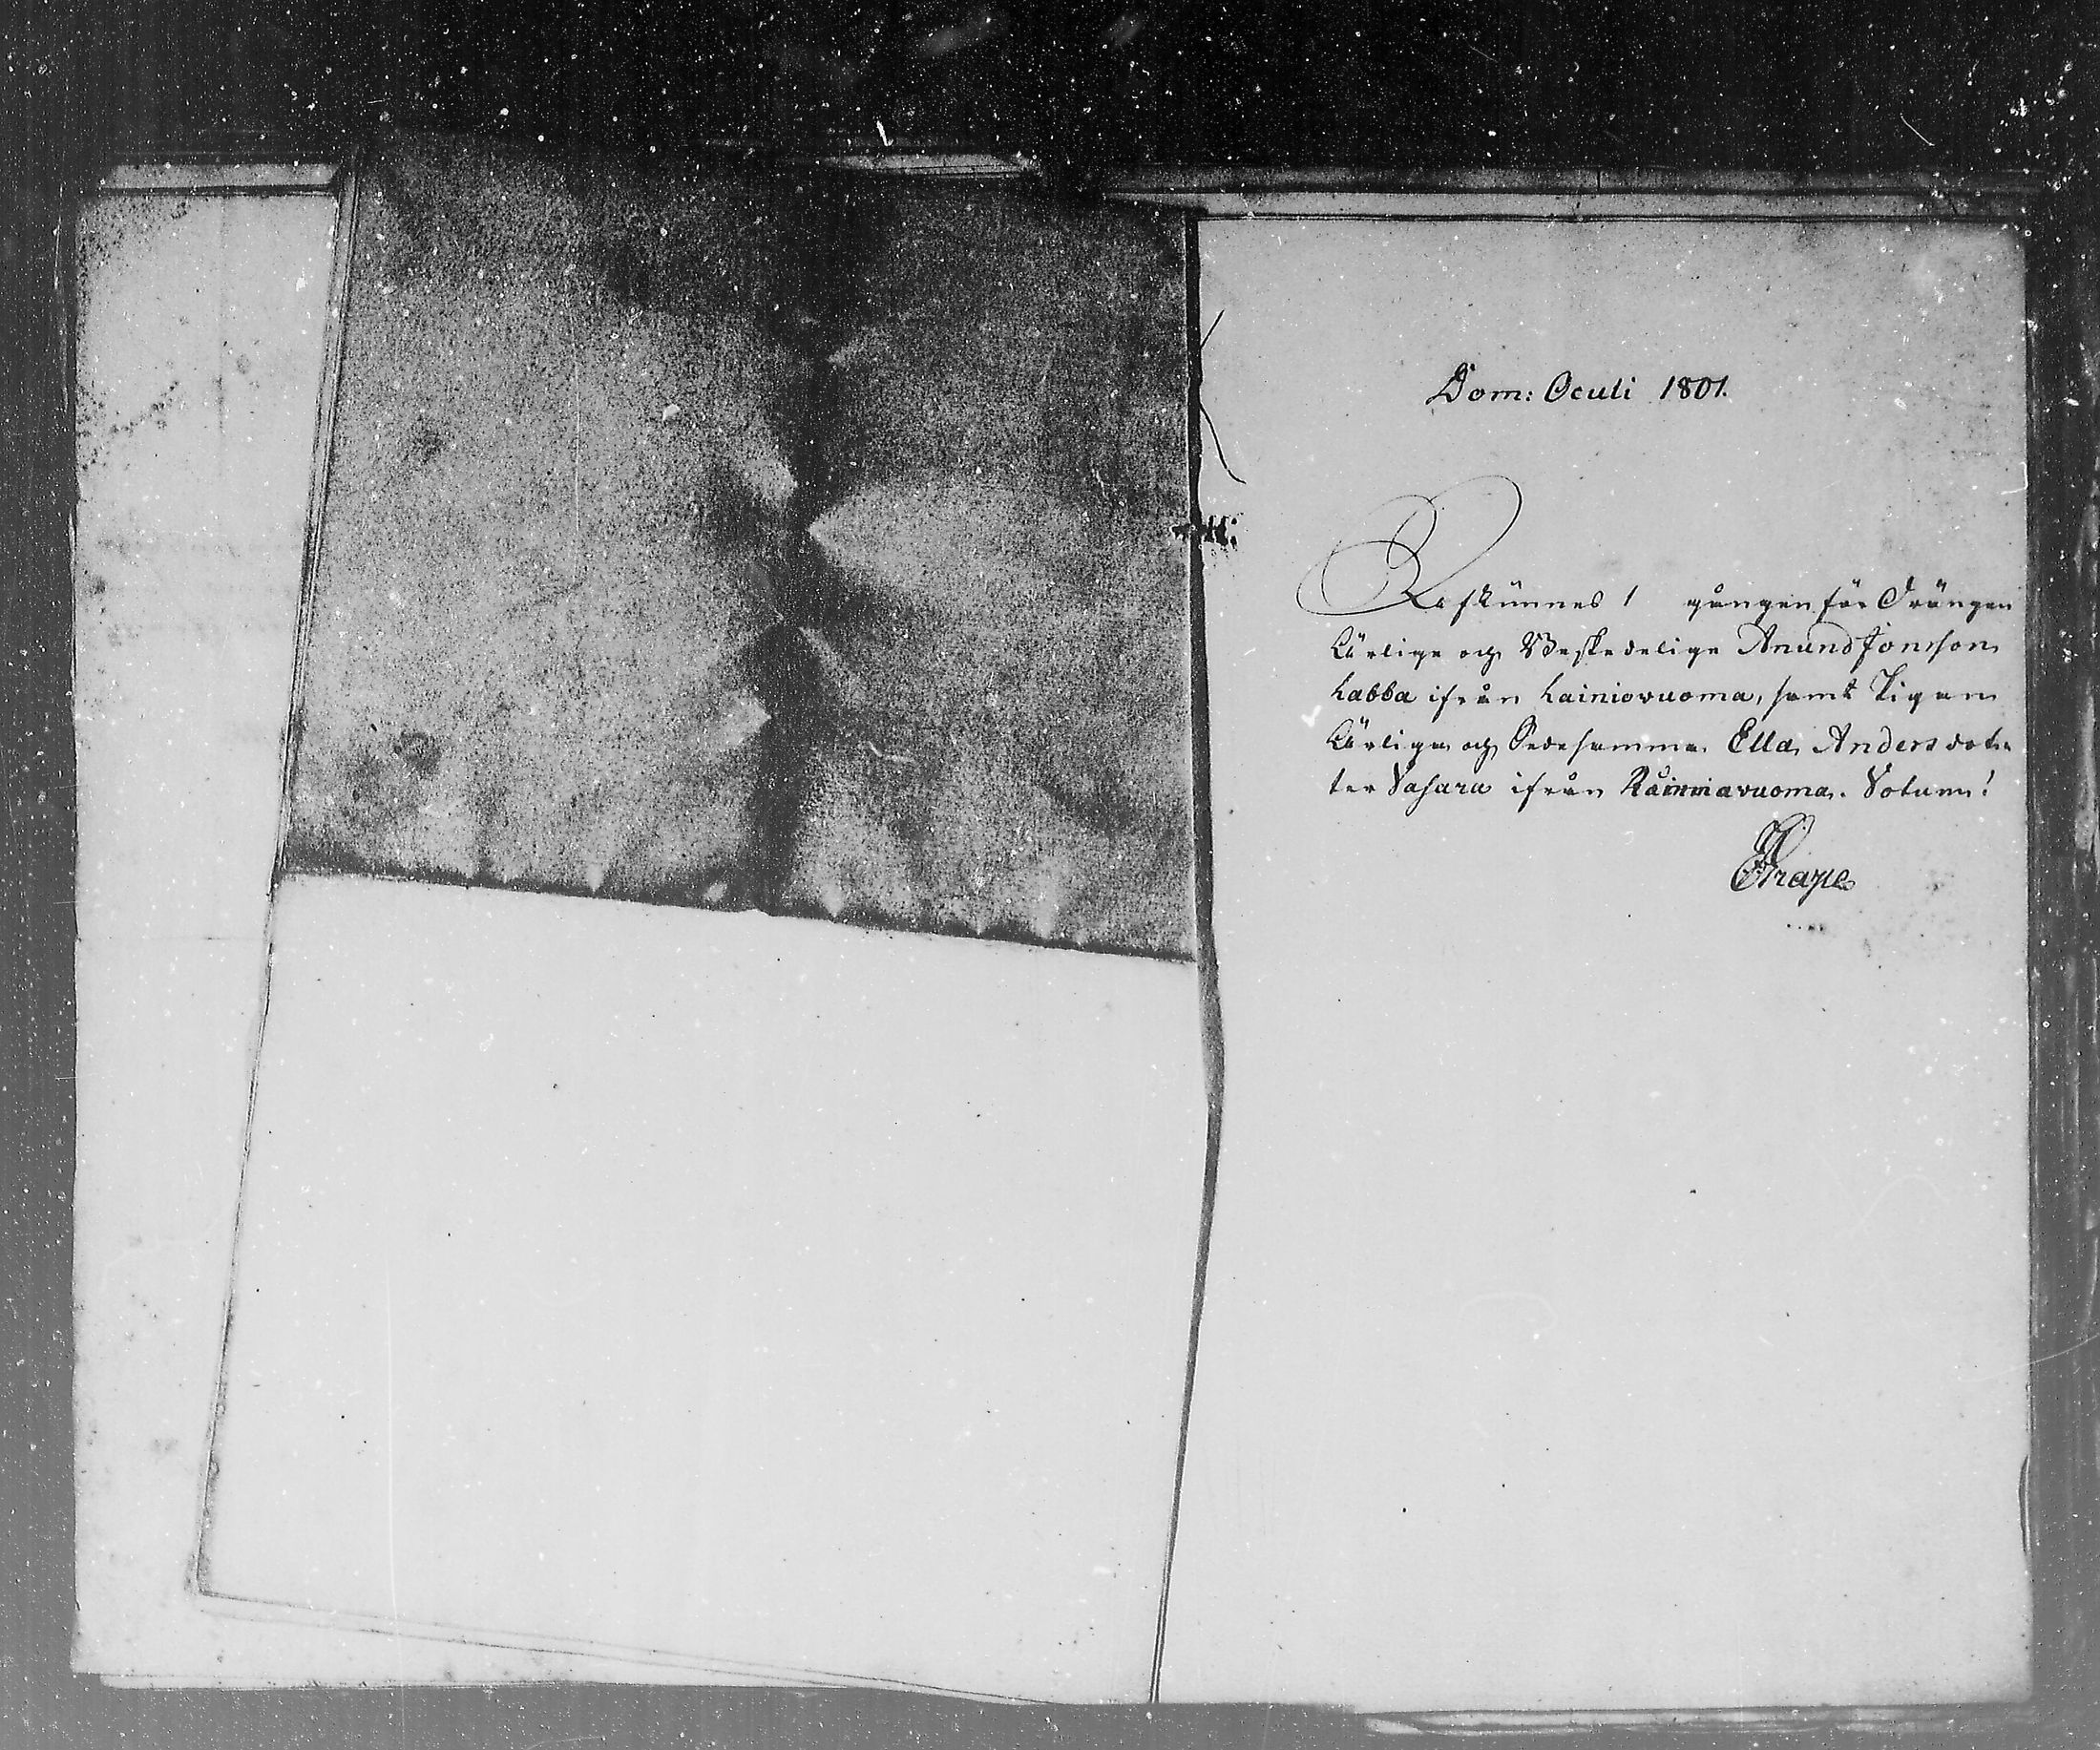 Dom: Oculi 1801.
Afkünnes 1 gången för Drängen
Ärlige och Beskedelige Anund Jonsson
Labba ifrån Lainiovuoma, samt Pigan
Ärliga och Sedesamma Ella Andersdot-
ter Vasara ifrån Råinniavuoma. Votum!
EGrape